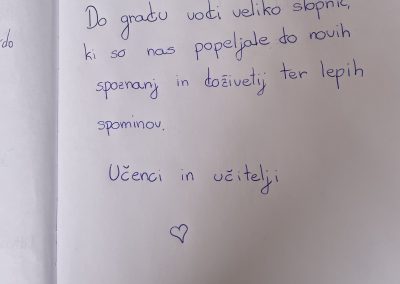 Do gradu vodi veliko stopnic,
ki so nas popeljale do novih
spoznanj in doživetij ter lepih
spominov.
Učenci in učitelji